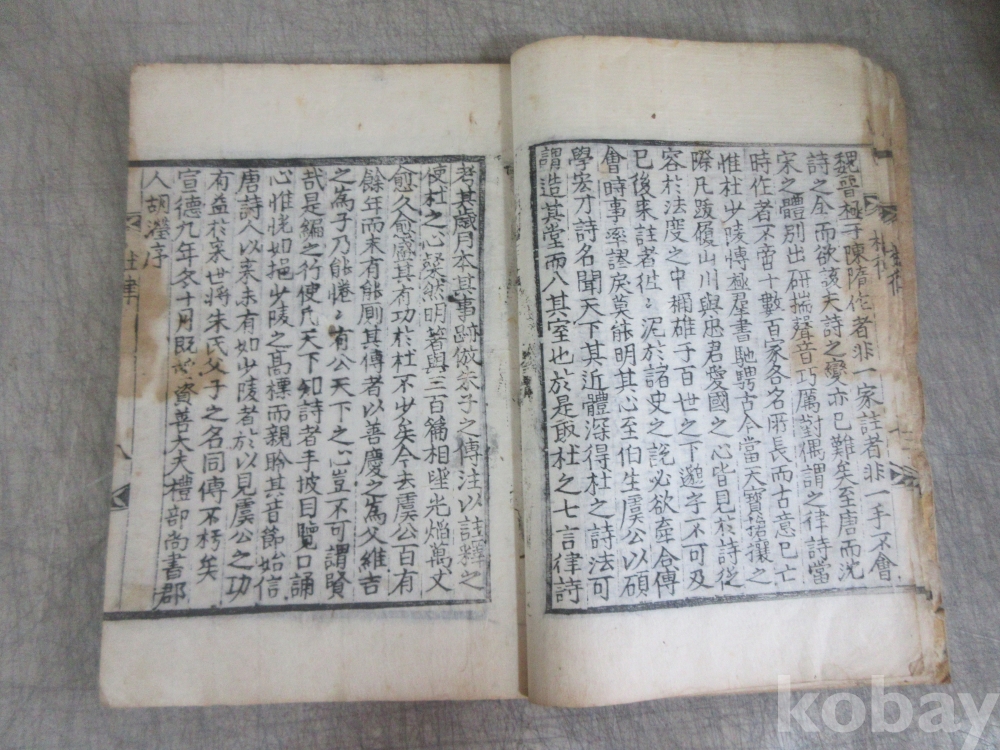 魏晉極于陳隋作者非一家註者非一手不會
詩之全而欲該夫詩之變亦已難矣至唐而沈
宋之體別出研揣聲音巧厲對偶謂之律詩當
時作者不啻十數百家各名所長而古意已亡
惟杜少陵博極群書馳騁古今當天寶搶攘之
際凡跋履山川與夫君愛國之心皆見於詩從
容於法度之中櫩雄于百世之下邈乎不可及
已後來註者徃〻泥於諸史之說必欲牽合傅
會時事率認戾莫能明其心至伯生虞公以碩
學宏才詩名聞天下其近體深得杜之詩法可
謂造其堂而入其室也於是取杜之七言律詩
考其歲月本其事跡倣朱子之傳注以註釋之
使杜之心粲然明著與三百篇相陞光燄萬丈
愈久愈盛其有功於杜不少矣今去虞公百有
餘年而未有能廁其傳者以善慶之為父維吉
之為子乃能惓〻有公天下之心豈不可謂賢
哉是編之行使凡天下知詩者手披目覽口誦
心惟恍如挹少陵之高標而親聆其音節始信
唐詩人以來未有如少陵者於以見虞公之功
有益於來世將朱氏父子之名同傳不朽矣
宣德九年冬十月既 資善大夫禮部尚書郡
人胡濙序
註律
kobay